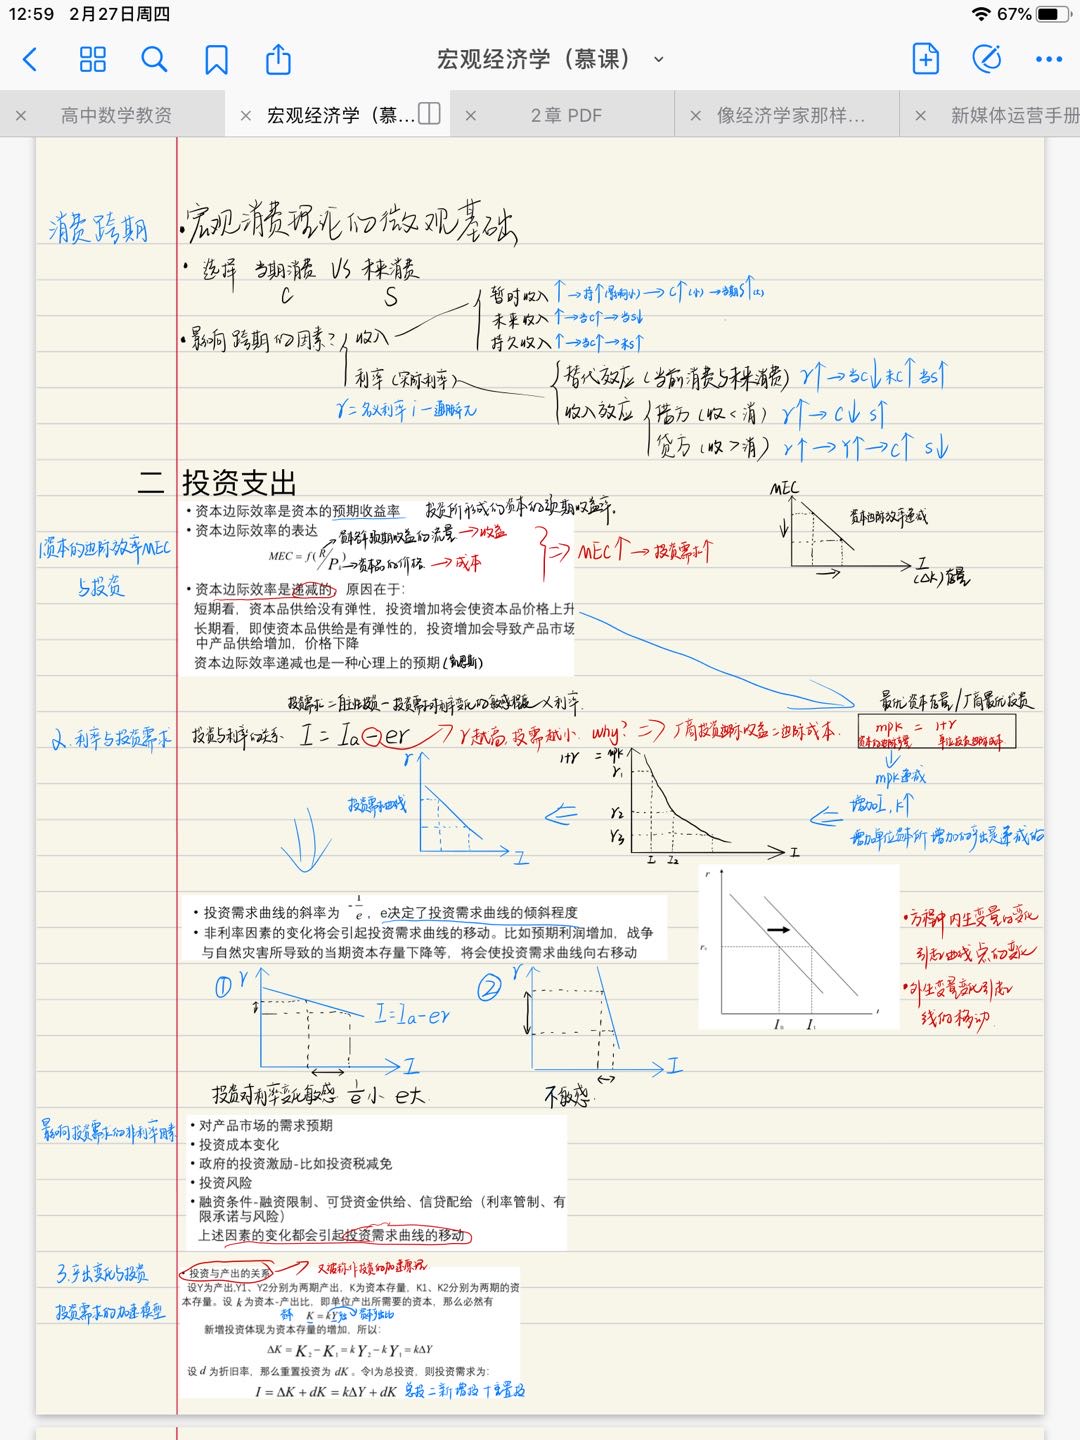 12:59 2月27日周四
67%
宏观经济学（慕课）
高中数学教资
宏观经济学（慕...
2章 PDF
像经济学家那样...
新媒体运营手册
消费跨期
·宏观消费理论的微观基础
·选择 当期消费 VS 未来消费
C S
暂时收入↑→持↑(影响小)→C↑(小)→当期S↑(大)
未来收入↑→当C↑→当S↓
·影响跨期的因素? 收入
持久收入↑→当C↑→未S↑
利率(实际利率)
替代效应(当前消费与未来消费) r↑→当C↓未C↑当S↑
r=名义利率i-通胀
收入效应 借方(收<消) r↑→C↓ S↑
贷方(收>消) r↑→Y↑→C↑ S↓
二 投资支出
MEC
•资本边际效率是资本的预期收益率 投资所形成的资本的预期收益率。
资本边际效率递减
•资本边际效率的表达 资本预期收益的流量→收益
1资本的边际效率MEC
与投资
MEC=f(R/P) →资本品的价格→成本
⇒MEC↑→投资需求↑
I
(ΔK)存量
•资本边际效率是递减的，原因在于：
短期看，资本品供给没有弹性，投资增加将会使资本品价格上升
长期看，即使资本品供给是有弹性的，投资增加会导致产品市场
中产品供给增加，价格下降
资本边际效率递减也是一种心理上的预期(凯恩斯)
投资需求=自主投资-投资需求对利率变化的敏感程度×利率.
最优资本存量/厂商最优投资
2.利率与投资需求
投资与利率的关系 I=Ia-er
r越高,投需越小. why? ⇒厂商投资边际收益=边际成本.
mpk = 1+r
单位投资边际成本
mpk递减
1+r = mpk
r
r₁
r₂
r₃
I₁ I₂
I
投资需求曲线
I
增加I,K↑
增加单位资本所增加的产出是递减的
•投资需求曲线的斜率为 -1/e，e决定了投资需求曲线的倾斜程度
•非利率因素的变化将会引起投资需求曲线的移动。比如预期利润增加，战争
与自然灾害所导致的当期资本存量下降等，将会使投资需求曲线向右移动
r
I₀ I₁
•方程中内生变量的变化
引起曲线点的变化
•外生变量变化引起
线的移动.
① r
I=Ia-er
I
② r
I
投资对利率变化敏感 1/e小 e大
不敏感.
影响投资需求的非利率因素
•对产品市场的需求预期
•投资成本变化
•政府的投资激励-比如投资税减免
•投资风险
•融资条件-融资限制、可贷资金供给、信贷配给（利率管制、有
限承诺与风险）
上述因素的变化都会引起投资需求曲线的移动
3.产出变化与投资
投资需求的加速模型
•投资与产出的关系 → 又被称作投资的加速原理
设Y为产出,Y1、Y2分别为两期产出，K为资本存量，K1、K2分别为两期的资
本存量。设 k 为资本-产出比，即单位产出所需要的资本，那么必然有
K=kY
新增投资体现为资本存量的增加，所以：
ΔK=K₂-K₁=kY₂-kY₁=kΔY
设 d 为折旧率，那么重置投资为 dK 。令I为总投资，则投资需求为：
I=ΔK+dK=kΔY+dK 总投=新增投+重置投